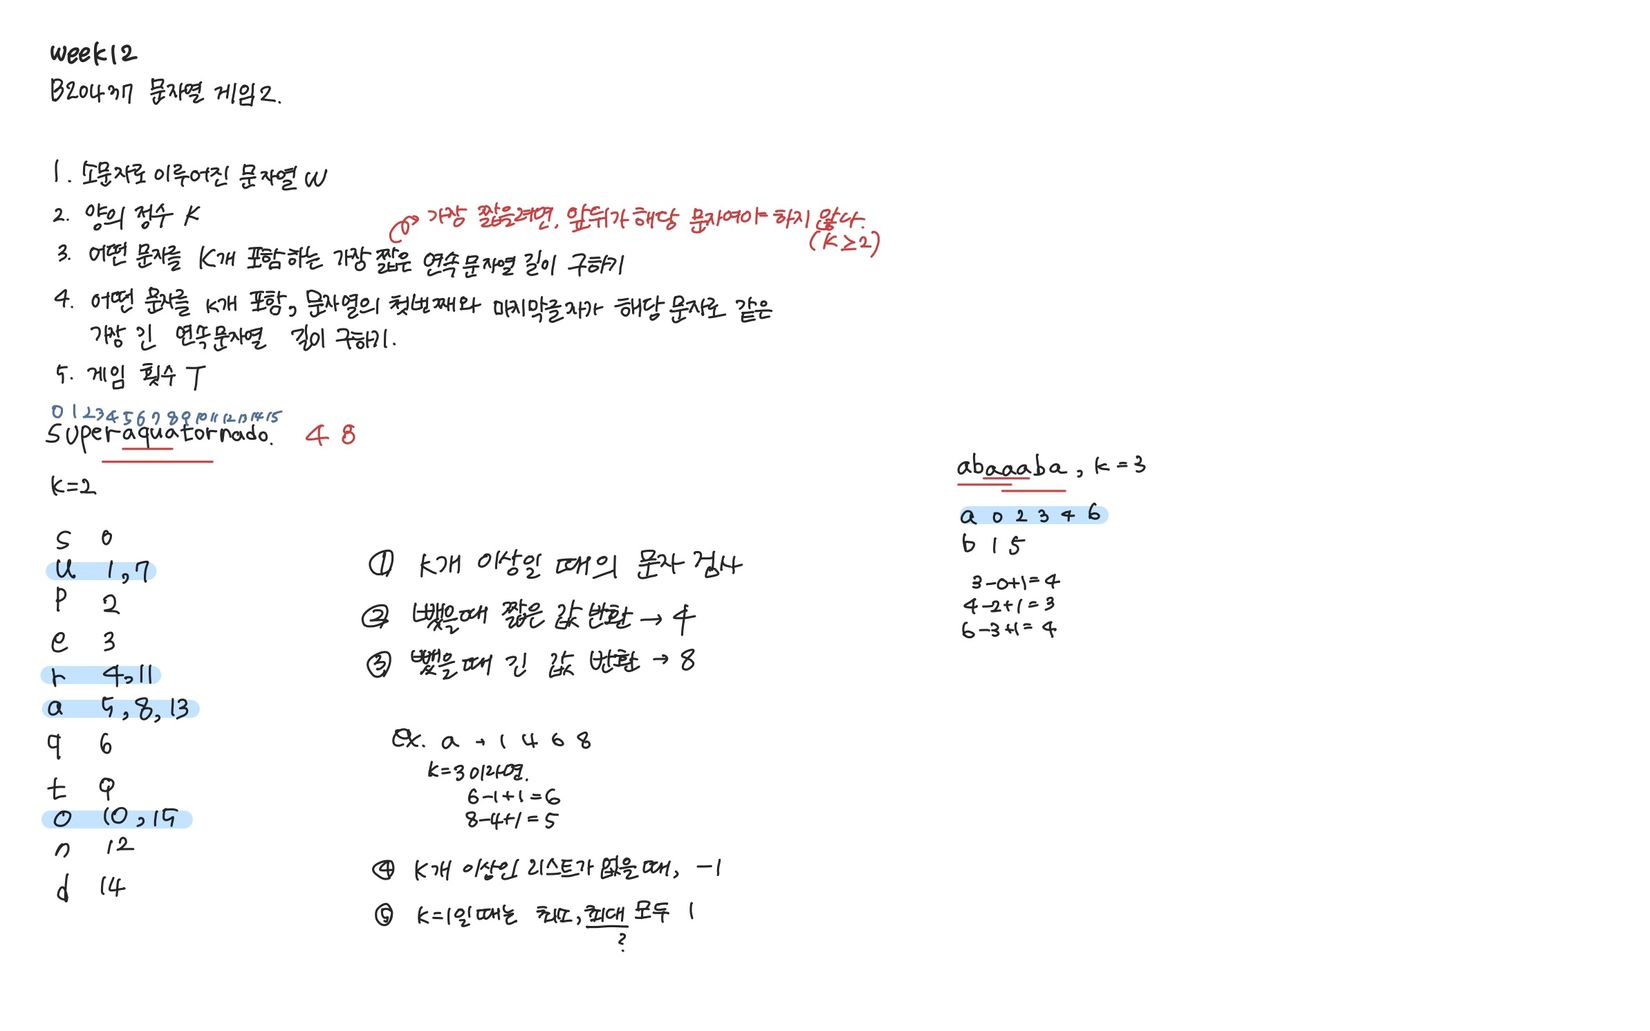 week12
B20437 문자열 게임2.
1. 소문자로 이루어진 문자열 W
2. 양의 정수 K
가장 짧을려면, 앞뒤가 해당 문자여야 하지 않나.
(K≥2)
3. 어떤 문자를 K개 포함하는 가장 짧은 연속문자열 길이 구하기
4. 어떤 문자를 K개 포함, 문자열의 첫번째와 마지막글자가 해당 문자로 같은
가장 긴 연속문자열 길이 구하기.
5. 게임 횟수 T
0 1 2 3 4 5 6 7 8 9 10 11 12 13 14 15
superaquatornado. 4 8
K=2
s 0
u 1,7
p 2
e 3
r 4,11
a 5,8,13
q 6
t 9
o 10,15
n 12
d 14
① K개 이상일 때의 문자 검사
② 뺐을때 짧은 값 반환 → 4
③ 뺐을때 긴 값 반환 → 8
ex. a → 1 4 6 8
K=3이라면.
6-1+1=6
8-4+1=5
④ K개 이상인 리스트가 없을때, -1
⑤ K=1일때는 최소, 최대 모두 1
?
abaaaba, K=3
a 0 2 3 4 6
b 1 5
3-0+1=4
4-2+1=3
6-3+1=4